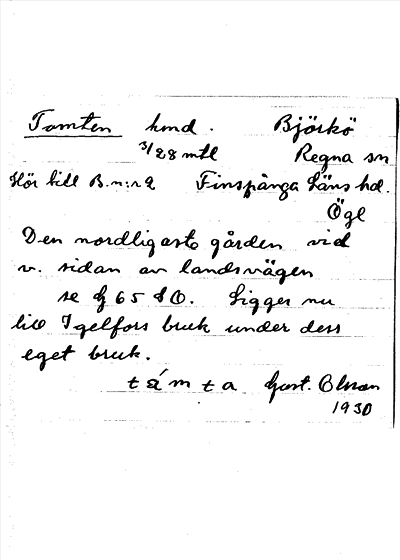 Tomten hmd. Björkö
3/28 mtl Regna sn
Hör till B.n:r 2 Finspånga Läns hd.
Ögl
Den nordligaste gården vid
v. sidan av landsvägen
se 65 Ö. Ligger nu
till Igelfors bruk under dess
eget bruk.
támta Gust. Olsson
1930